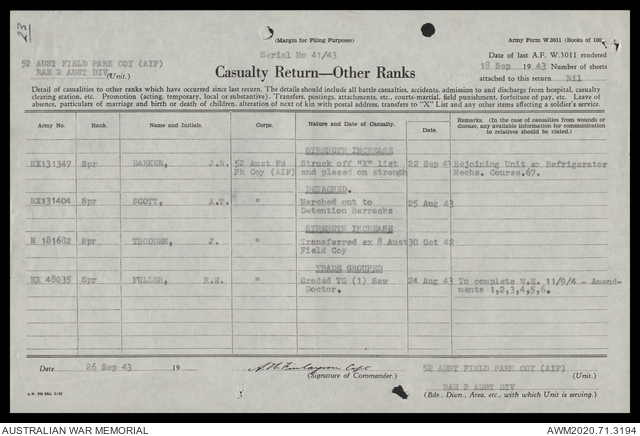 23
(Margin for Filing Purposes)
Army Form W.3011 (Books of 100)
Serial No 41/43
Date of last A.F. W.3011 rendered
52 AUST FIELD PARK COY (AIF)
RAE 2 AUST DIV (Unit.)
18 Sep 1943 Number of sheets
attached to this return Nil
Casualty Return—Other Ranks
Detail of casualties to other ranks which have occurred since last return. The details should include all battle casualties, accidents, admission to and discharge from hospital, casualty
clearing station, etc. Promotion (acting, temporary, local or substantive). Transfers, postings, attachments, etc., courts-martial, field punishment, forfeiture of pay, etc. Leave of
absence, particulars of marriage and birth or death of children, alteration of next of kin with postal address, transfers to "X" List and any other items affecting a soldier's service.
Army No. Rank. Name and Initials. Corps. Nature and Date of Casualty. Date. Remarks. (In the case of casualties from wounds or
disease, any available information for communication
to relatives should be stated.)
STRENGTH INCREASE
NX131347 Spr BARKER, J.R. 52 Aust Fd Struck off "X" list 22 Sep 43 Rejoining Unit ex Refrigerator
Pk Coy (AIF) and placed on strength Mechs. Course.67.
DETACHED.
NX131404 Spr SCOTT, A.T. " Marched out to 25 Aug 43
Detention Barracks
STRENGTH INCREASE
N 181682 Spr THODDEN, J. " Transferred ex 8 Aust 30 Oct 42
Field Coy
TRADE GROUPED
NX 48035 Spr FULLER, R.E. " Graded TG (1) Saw 24 Aug 43 To complete W.E. 11/9/4 - Amend-
Doctor. ments 1,2,3,4,5,6.
Date 26 Sep 43 19
(Signature of Commander.)
52 AUST FIELD PARK COY (AIF)
(Unit.)
RAE 2 AUST DIV
(Bde., Divn., Area, etc., with which Unit is serving.)
AUSTRALIAN WAR MEMORIAL
AWM2020.71.3194